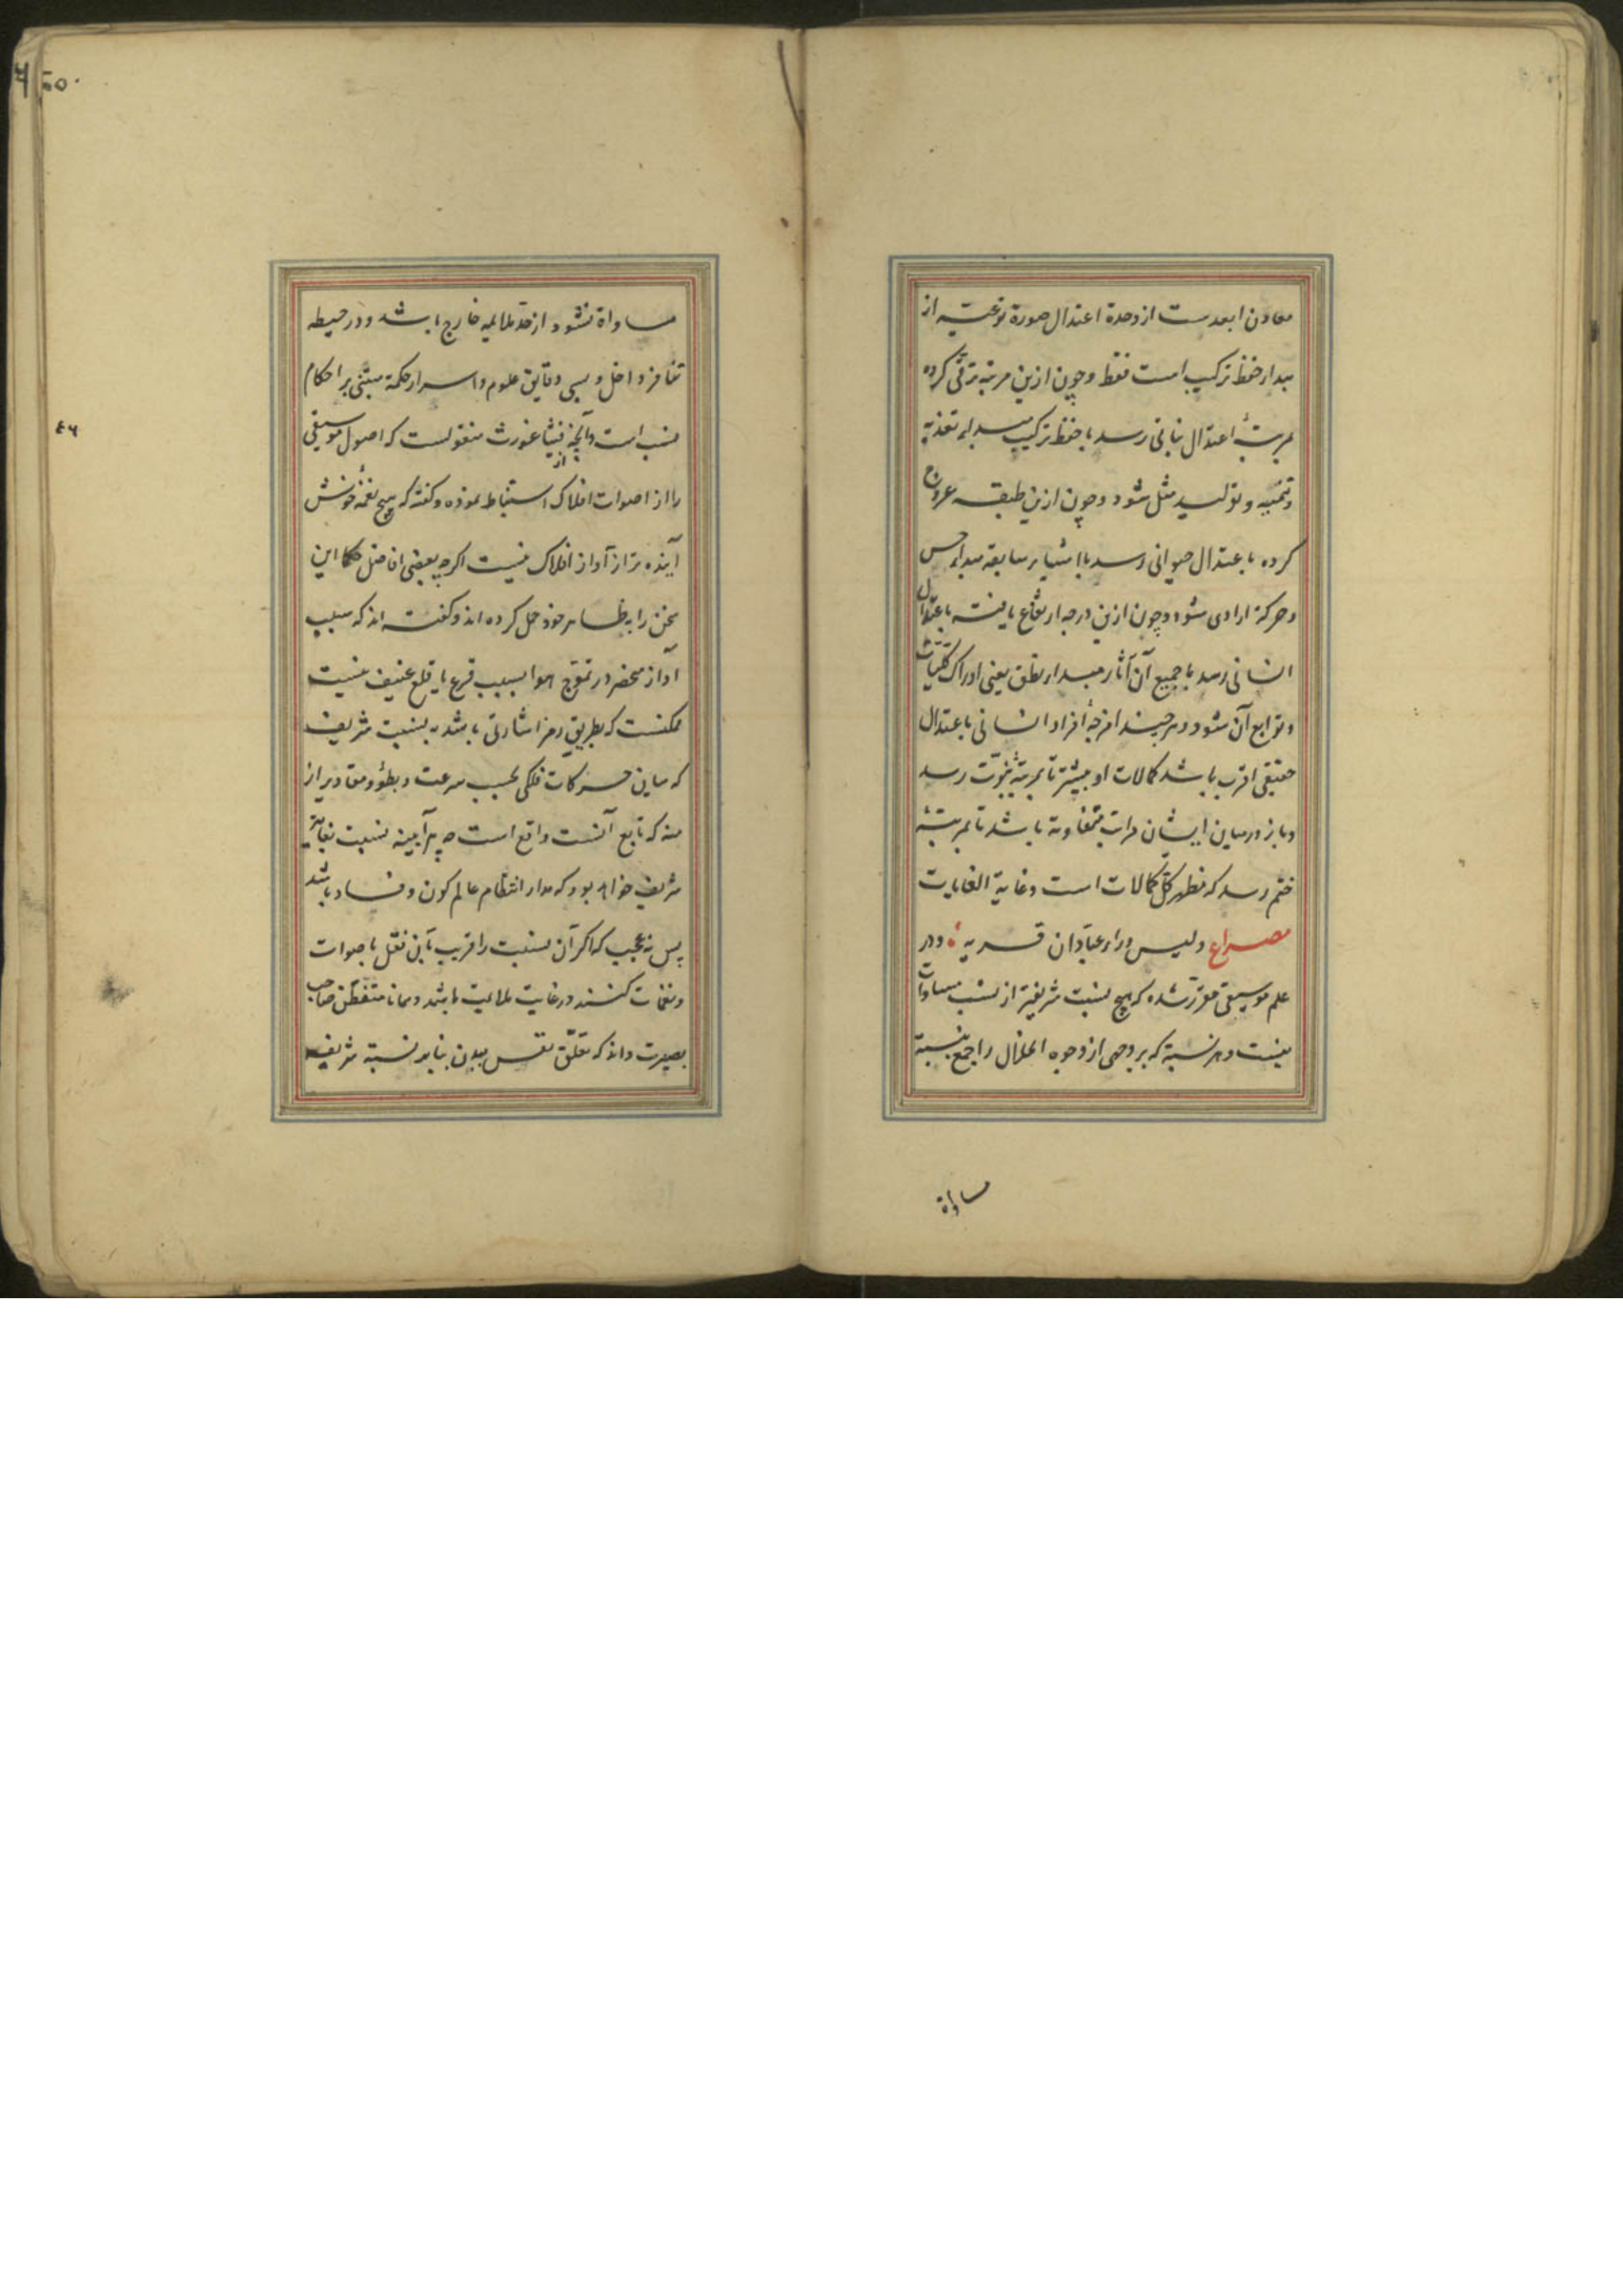 معادن ابعدست از وحدة اعتدال صورة نوعیه از
مبدأ حفظ ترکیب است فقط و چون ازین مرتبه ترقّی کرده
بمرتبهٔ اعتدال نباتی رسد با حفظ ترکیب مبدأ تغذیه
و تنمیه و تولید مثل شود و چون ازین طبقه عروج
کرده باعتدال حیوانی رسد با اشیاء سابقه مبدأ حس
و حرکة ارادی شود و چون ازین درجه ارتفاع یافته باعتدال
انسانی رسد با جمیع آن آثار مبدأ نطق یعنی ادراک کلیات
و توابع آن شود و هر چند امزجهٔ افراد انسانی باعتدال
حقیقی اقرب باشد کمالات او بیشتر تا بمرتبهٔ نبوّت رسد
و باز در میان ایشان مراتب متفاوته باشد تا بمرتبهٔ
ختم رسد که مظهر کلّ کمالات است و غایة الغایات
مصراع ولیس وراء عبّادان قریه ، و در
علم موسیقی مقرّر شده که هیچ نسبت شریفتر از نسبت مساوات
نیست و هر نسبة که بر وجهی از وجوه انحلال راجع بنسبة
مساواة
٥٠
مساواة نشود از حدّ ملایمه خارج باشد و در حیطه
تنافر داخل و بسی دقایق علوم و اسرار حکمة مبتنی بر احکام
نسب است و آنچه از فیثاغورث منقولست که اصول موسیقی
را از اصوات افلاک استنباط نموده و گفته که هیچ نغمه خوش
آینده تر از آواز افلاک نیست اگرچه بعضی افاضل حکما این
سخن را بظاهر خود حمل کرده اند و گفته اند که سبب
آواز منحصر در تموّج هوا بسبب قرع یا قلع عنیف نیست
ممکنست که بطریق رمز اشارتی باشد به نسبت شریف
که میان حرکات فلکی بحسب سرعت و بطؤ و مقادیر از
منه که تابع آنست واقع است چه هرآیینه نسبت بغایة
شریف خواهد بود که مدار انتظام عالم کون و فساد باشد
پس نه عجب که اگر آن نسبت را قریب بآن نقل باصوات
و نغمات کنند در غایت ملایمت باشد و همانا متفطّن صاحب
بصیرت داند که تعلّق نفس ببدن بنابر نسبة شریف
٤٦